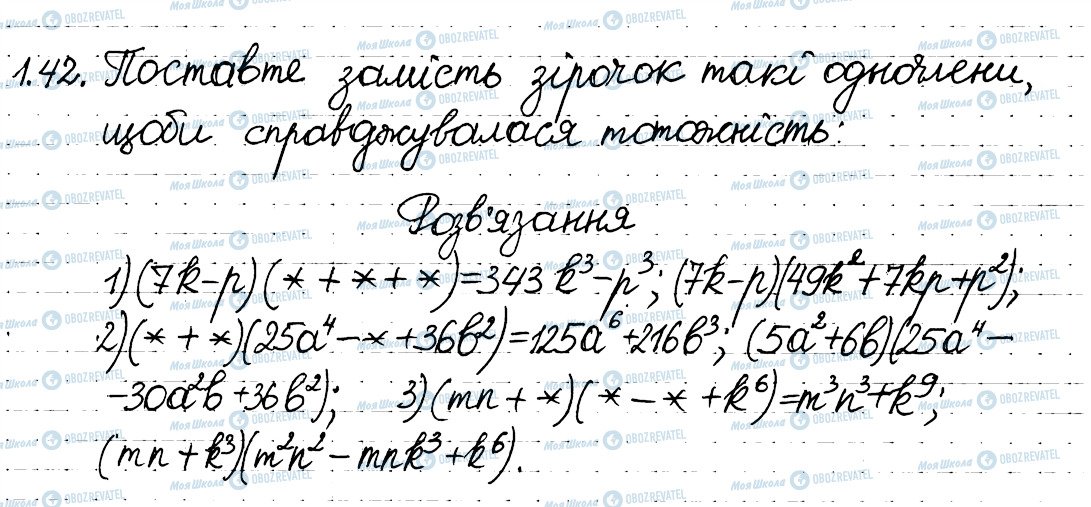 1.42. Поставте замість зірочок такі одночлени,
щоби справджувалася тотожність:
Розв'язання
1) (7k-p)(* + * + *)=343 k³-p³; (7k-p)(49k²+7kp+p²);
2) (* + *)(25a⁴ - * + 36b²)=125a⁶+216b³; (5a²+6b)(25a⁴ -
-30a²b+36b²); 3) (mn + *)(* - * + k⁶)=m³n³+k⁹;
(mn+k³)(m²n² - mnk³ +k⁶).